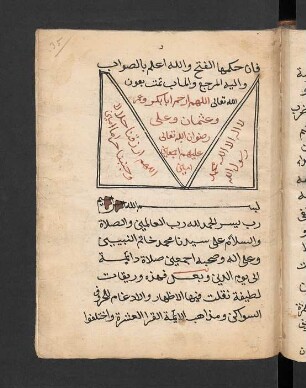 فان حكمها الفتح والله اعلم بالصواب
واليه المرجع والماب تمت بعون
الله تعالى اللهم ارحم ابا بكر وعمر
وعثمان وعلى
رضوان الله تعالى
عليهم اجمعين
امين
لا اله الا الله محمد
رسول الله
اللهم ارزقنا حلالا
وجنبنا حراما امين
بسم الله الرحمن الرحيم
رب يسر الحمد لله رب العالمين والصلاة
والسلام على سيدنا محمد خاتم النبيين
وعلى اله وصحبه اجمعين صلاة دائمة
الى يوم الدين وبعد فهذه وريقات
لطيفة نقلت فيها الاظهار والادغام الحرفي
السواكن ومذاهب الائمة القرا العشرة واختلفوا